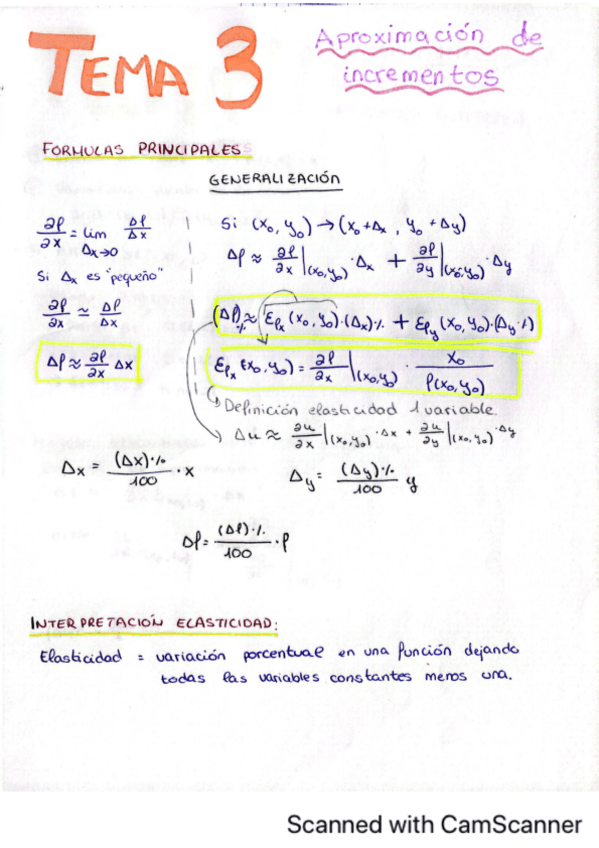 TEMA 3
Aproximación de
incrementos
FORMULAS PRINCIPALES
GENERALIZACIÓN
∂f/∂x = lim Δx→0 Δf/Δx
Si Δx es "pequeño"
∂f/∂x ≃ Δf/Δx
Δf ≈ ∂f/∂x Δx
Si (x₀, y₀) → (x₀+Δx, y₀+Δy)
Δf ≈ ∂f/∂x |(x₀,y₀) · Δx + ∂f/∂y |(x₀,y₀) · Δy
(Δf)% ≈ Ɛfx (x₀, y₀)·(Δx)% + Ɛfy (x₀, y₀)·(Δy%)
Ɛfx (x₀, y₀) = ∂f/∂x |(x₀,y₀) · x₀/f(x₀,y₀)
Definición elasticidad 1 variable.
Δu ≈ ∂u/∂x |(x₀,y₀) · Δx + ∂u/∂y |(x₀,y₀) · Δy
Δx = (Δx)·%/100 · x
Δy = (Δy)·%/100 y
Δf = (Δf)·%/100 · f
INTERPRETACIÓN ELASTICIDAD:
Elasticidad = variación porcentual en una función dejando
todas las variables constantes menos una.
Scanned with CamScanner